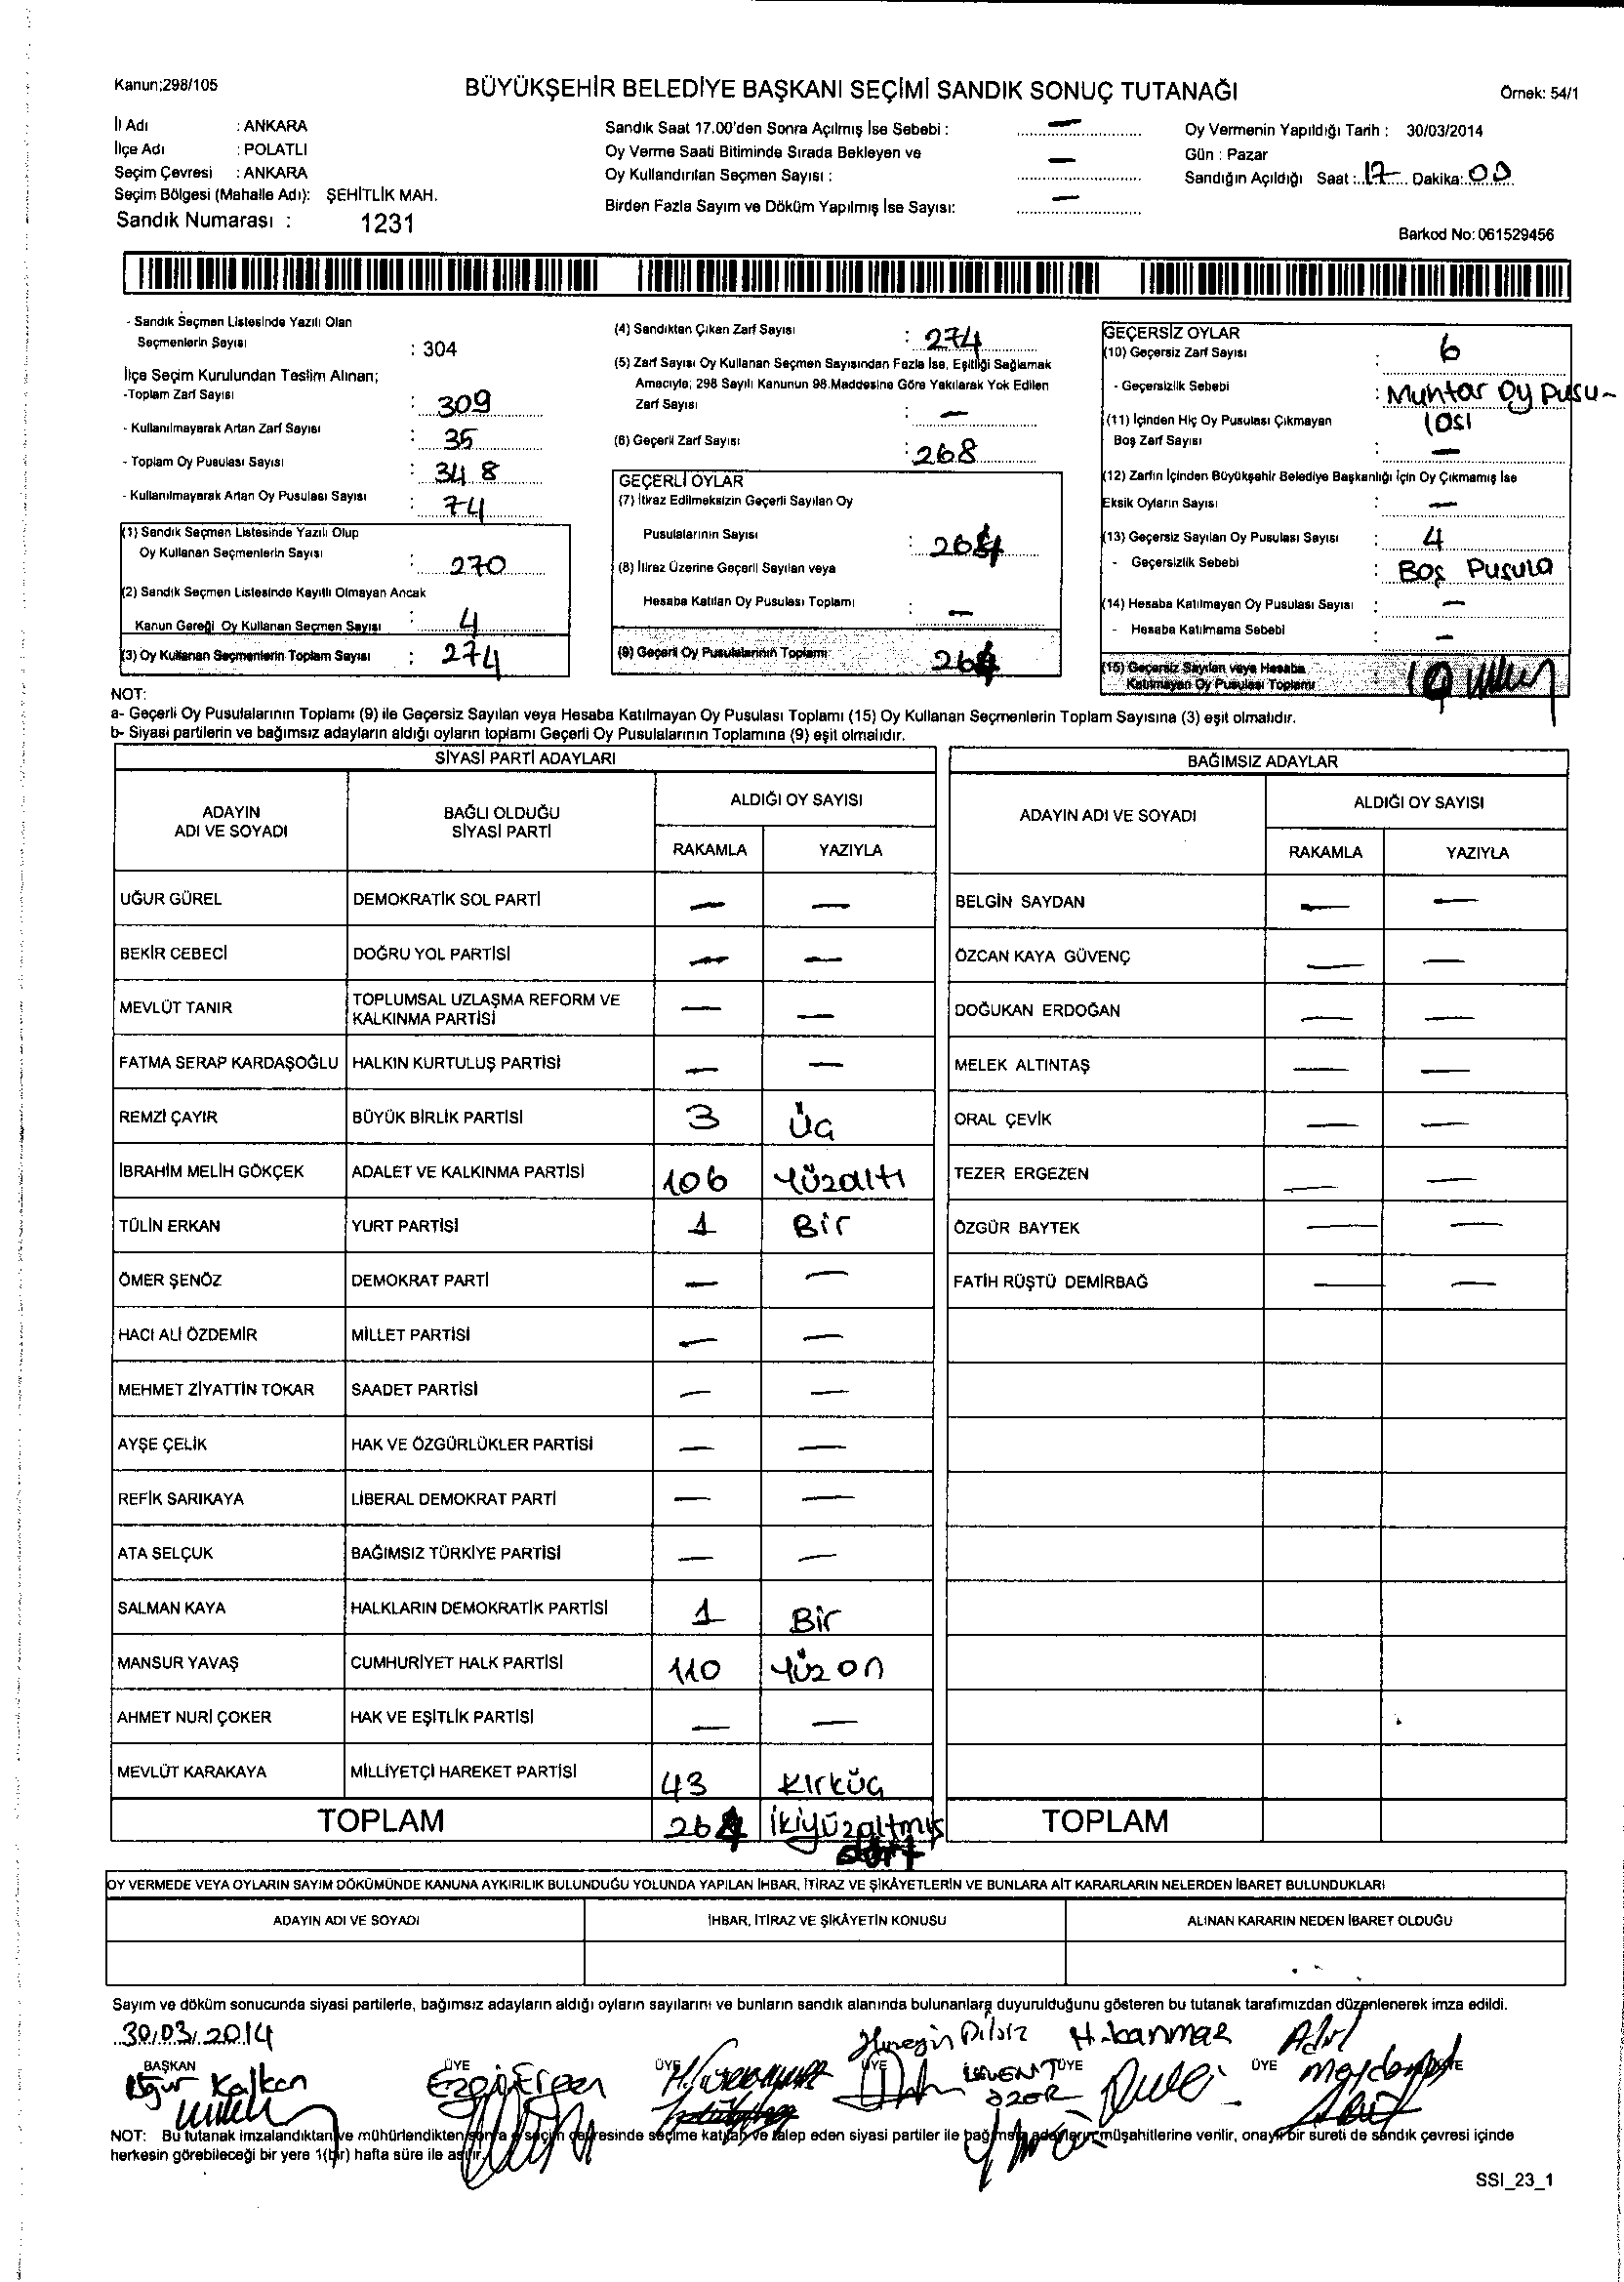 Kanun:298/105
BÜYÜKŞEHİR BELEDİYE BAŞKANI SEÇİMİ SANDIK SONUÇ TUTANAĞI
Örnek: 54/1
İl Adı : ANKARA
İlçe Adı : POLATLI
Seçim Çevresi : ANKARA
Seçim Bölgesi (Mahalle Adı): ŞEHİTLİK MAH.
Sandık Numarası : 1231
Sandık Saat 17.00'den Sonra Açılmış İse Sebebi : —
Oy Verme Saati Bitiminde Sırada Bekleyen ve
Oy Kullandırılan Seçmen Sayısı : —
Birden Fazla Sayım ve Döküm Yapılmış İse Sayısı: —
Oy Vermenin Yapıldığı Tarih : 30/03/2014
Gün : Pazar
Sandığın Açıldığı Saat : 17 Dakika: 00
Barkod No: 061529456
- Sandık Seçmen Listesinde Yazılı Olan
Seçmenlerin Sayısı : 304
İlçe Seçim Kurulundan Teslim Alınan;
-Toplam Zarf Sayısı : 309
- Kullanılmayarak Artan Zarf Sayısı : 35
- Toplam Oy Pusulası Sayısı : 348
- Kullanılmayarak Artan Oy Pusulası Sayısı : 74
(1) Sandık Seçmen Listesinde Yazılı Olup
Oy Kullanan Seçmenlerin Sayısı : 270
(2) Sandık Seçmen Listesinde Kayıtlı Olmayan Ancak
Kanun Gereği Oy Kullanan Seçmen Sayısı : 4
(3) Oy Kullanan Seçmenlerin Toplam Sayısı : 274
(4) Sandıktan Çıkan Zarf Sayısı : 274
(5) Zarf Sayısı Oy Kullanan Seçmen Sayısından Fazla İse, Eşitliği Sağlamak
Amacıyla; 298 Sayılı Kanunun 98.Maddesine Göre Yakılarak Yok Edilen
Zarf Sayısı : —
(6) Geçerli Zarf Sayısı : 268
GEÇERLİ OYLAR
(7) İtiraz Edilmeksizin Geçerli Sayılan Oy
Pusulalarının Sayısı : 264
(8) İtiraz Üzerine Geçerli Sayılan veya
Hesaba Katılan Oy Pusulası Toplamı : —
(9) Geçerli Oy Pusulalarının Toplamı 264
GEÇERSİZ OYLAR
(10) Geçersiz Zarf Sayısı : 6
- Geçersizlik Sebebi : Muhtar Oy Pusu-
lası
(11) İçinden Hiç Oy Pusulası Çıkmayan
Boş Zarf Sayısı : —
(12) Zarfın İçinden Büyükşehir Belediye Başkanlığı İçin Oy Çıkmamış İse
Eksik Oyların Sayısı : —
(13) Geçersiz Sayılan Oy Pusulası Sayısı : 4
- Geçersizlik Sebebi : Boş Pusula
(14) Hesaba Katılmayan Oy Pusulası Sayısı : —
- Hesaba Katılmama Sebebi : —
(15) Geçersiz Sayılan veya Hesaba
Katılmayan Oy Pusulası Toplamı : 10
NOT:
a- Geçerli Oy Pusulalarının Toplamı (9) ile Geçersiz Sayılan veya Hesaba Katılmayan Oy Pusulası Toplamı (15) Oy Kullanan Seçmenlerin Toplam Sayısına (3) eşit olmalıdır.
b- Siyasi partilerin ve bağımsız adayların aldığı oyların toplamı Geçerli Oy Pusulalarının Toplamına (9) eşit olmalıdır.
SİYASİ PARTİ ADAYLARI
ADAYIN ADI VE SOYADI
BAĞLI OLDUĞU SİYASİ PARTİ
ALDIĞI OY SAYISI
RAKAMLA YAZIYLA
UĞUR GÜREL DEMOKRATİK SOL PARTİ — —
BEKİR CEBECİ DOĞRU YOL PARTİSİ — —
MEVLÜT TANIR TOPLUMSAL UZLAŞMA REFORM VE KALKINMA PARTİSİ — —
FATMA SERAP KARDAŞOĞLU HALKIN KURTULUŞ PARTİSİ — —
REMZİ ÇAYIR BÜYÜK BİRLİK PARTİSİ 3 Üç
İBRAHİM MELİH GÖKÇEK ADALET VE KALKINMA PARTİSİ 106 Yüzaltı
TÜLİN ERKAN YURT PARTİSİ 1 Bir
ÖMER ŞENÖZ DEMOKRAT PARTİ — —
HACI ALİ ÖZDEMİR MİLLET PARTİSİ — —
MEHMET ZİYATTİN TOKAR SAADET PARTİSİ — —
AYŞE ÇELİK HAK VE ÖZGÜRLÜKLER PARTİSİ — —
REFİK SARIKAYA LİBERAL DEMOKRAT PARTİ — —
ATA SELÇUK BAĞIMSIZ TÜRKİYE PARTİSİ — —
SALMAN KAYA HALKLARIN DEMOKRATİK PARTİSİ 1 Bir
MANSUR YAVAŞ CUMHURİYET HALK PARTİSİ 110 Yüz on
AHMET NURİ ÇOKER HAK VE EŞİTLİK PARTİSİ — —
MEVLÜT KARAKAYA MİLLİYETÇİ HAREKET PARTİSİ 43 Kırküç
TOPLAM 264 İkiyüzaltmış
dört
BAĞIMSIZ ADAYLAR
ADAYIN ADI VE SOYADI
ALDIĞI OY SAYISI
RAKAMLA YAZIYLA
BELGİN SAYDAN — —
ÖZCAN KAYA GÜVENÇ — —
DOĞUKAN ERDOĞAN — —
MELEK ALTINTAŞ — —
ORAL ÇEVİK — —
TEZER ERGEZEN — —
ÖZGÜR BAYTEK — —
FATİH RÜŞTÜ DEMİRBAĞ — —
TOPLAM
OY VERMEDE VEYA OYLARIN SAYIM DÖKÜMÜNDE KANUNA AYKIRILIK BULUNDUĞU YOLUNDA YAPILAN İHBAR, İTİRAZ VE ŞİKÂYETLERİN VE BUNLARA AİT KARARLARIN NELERDEN İBARET BULUNDUKLARI
ADAYIN ADI VE SOYADI İHBAR, İTİRAZ VE ŞİKÂYETİN KONUSU ALINAN KARARIN NEDEN İBARET OLDUĞU
Sayım ve döküm sonucunda siyasi partilerle, bağımsız adayların aldığı oyların sayılarını ve bunların sandık alanında bulunanlara duyurulduğunu gösteren bu tutanak tarafımızdan düzenlenerek imza edildi.
30/03/2014
BAŞKAN ÜYE ÜYE ÜYE ÜYE ÜYE ÜYE
Uğur Kalkan
Ezgi Ergen
LEVENT
ÖZER
NOT: Bu tutanak imzalandıktan ve mühürlendikten sonra o seçim çevresinde seçime katılan ve talep eden siyasi partiler ile bağımsız adayların müşahitlerine verilir, onaylı bir sureti de sandık çevresi içinde
herkesin görebileceği bir yere 1(bir) hafta süre ile asılır.
SSI_23_1